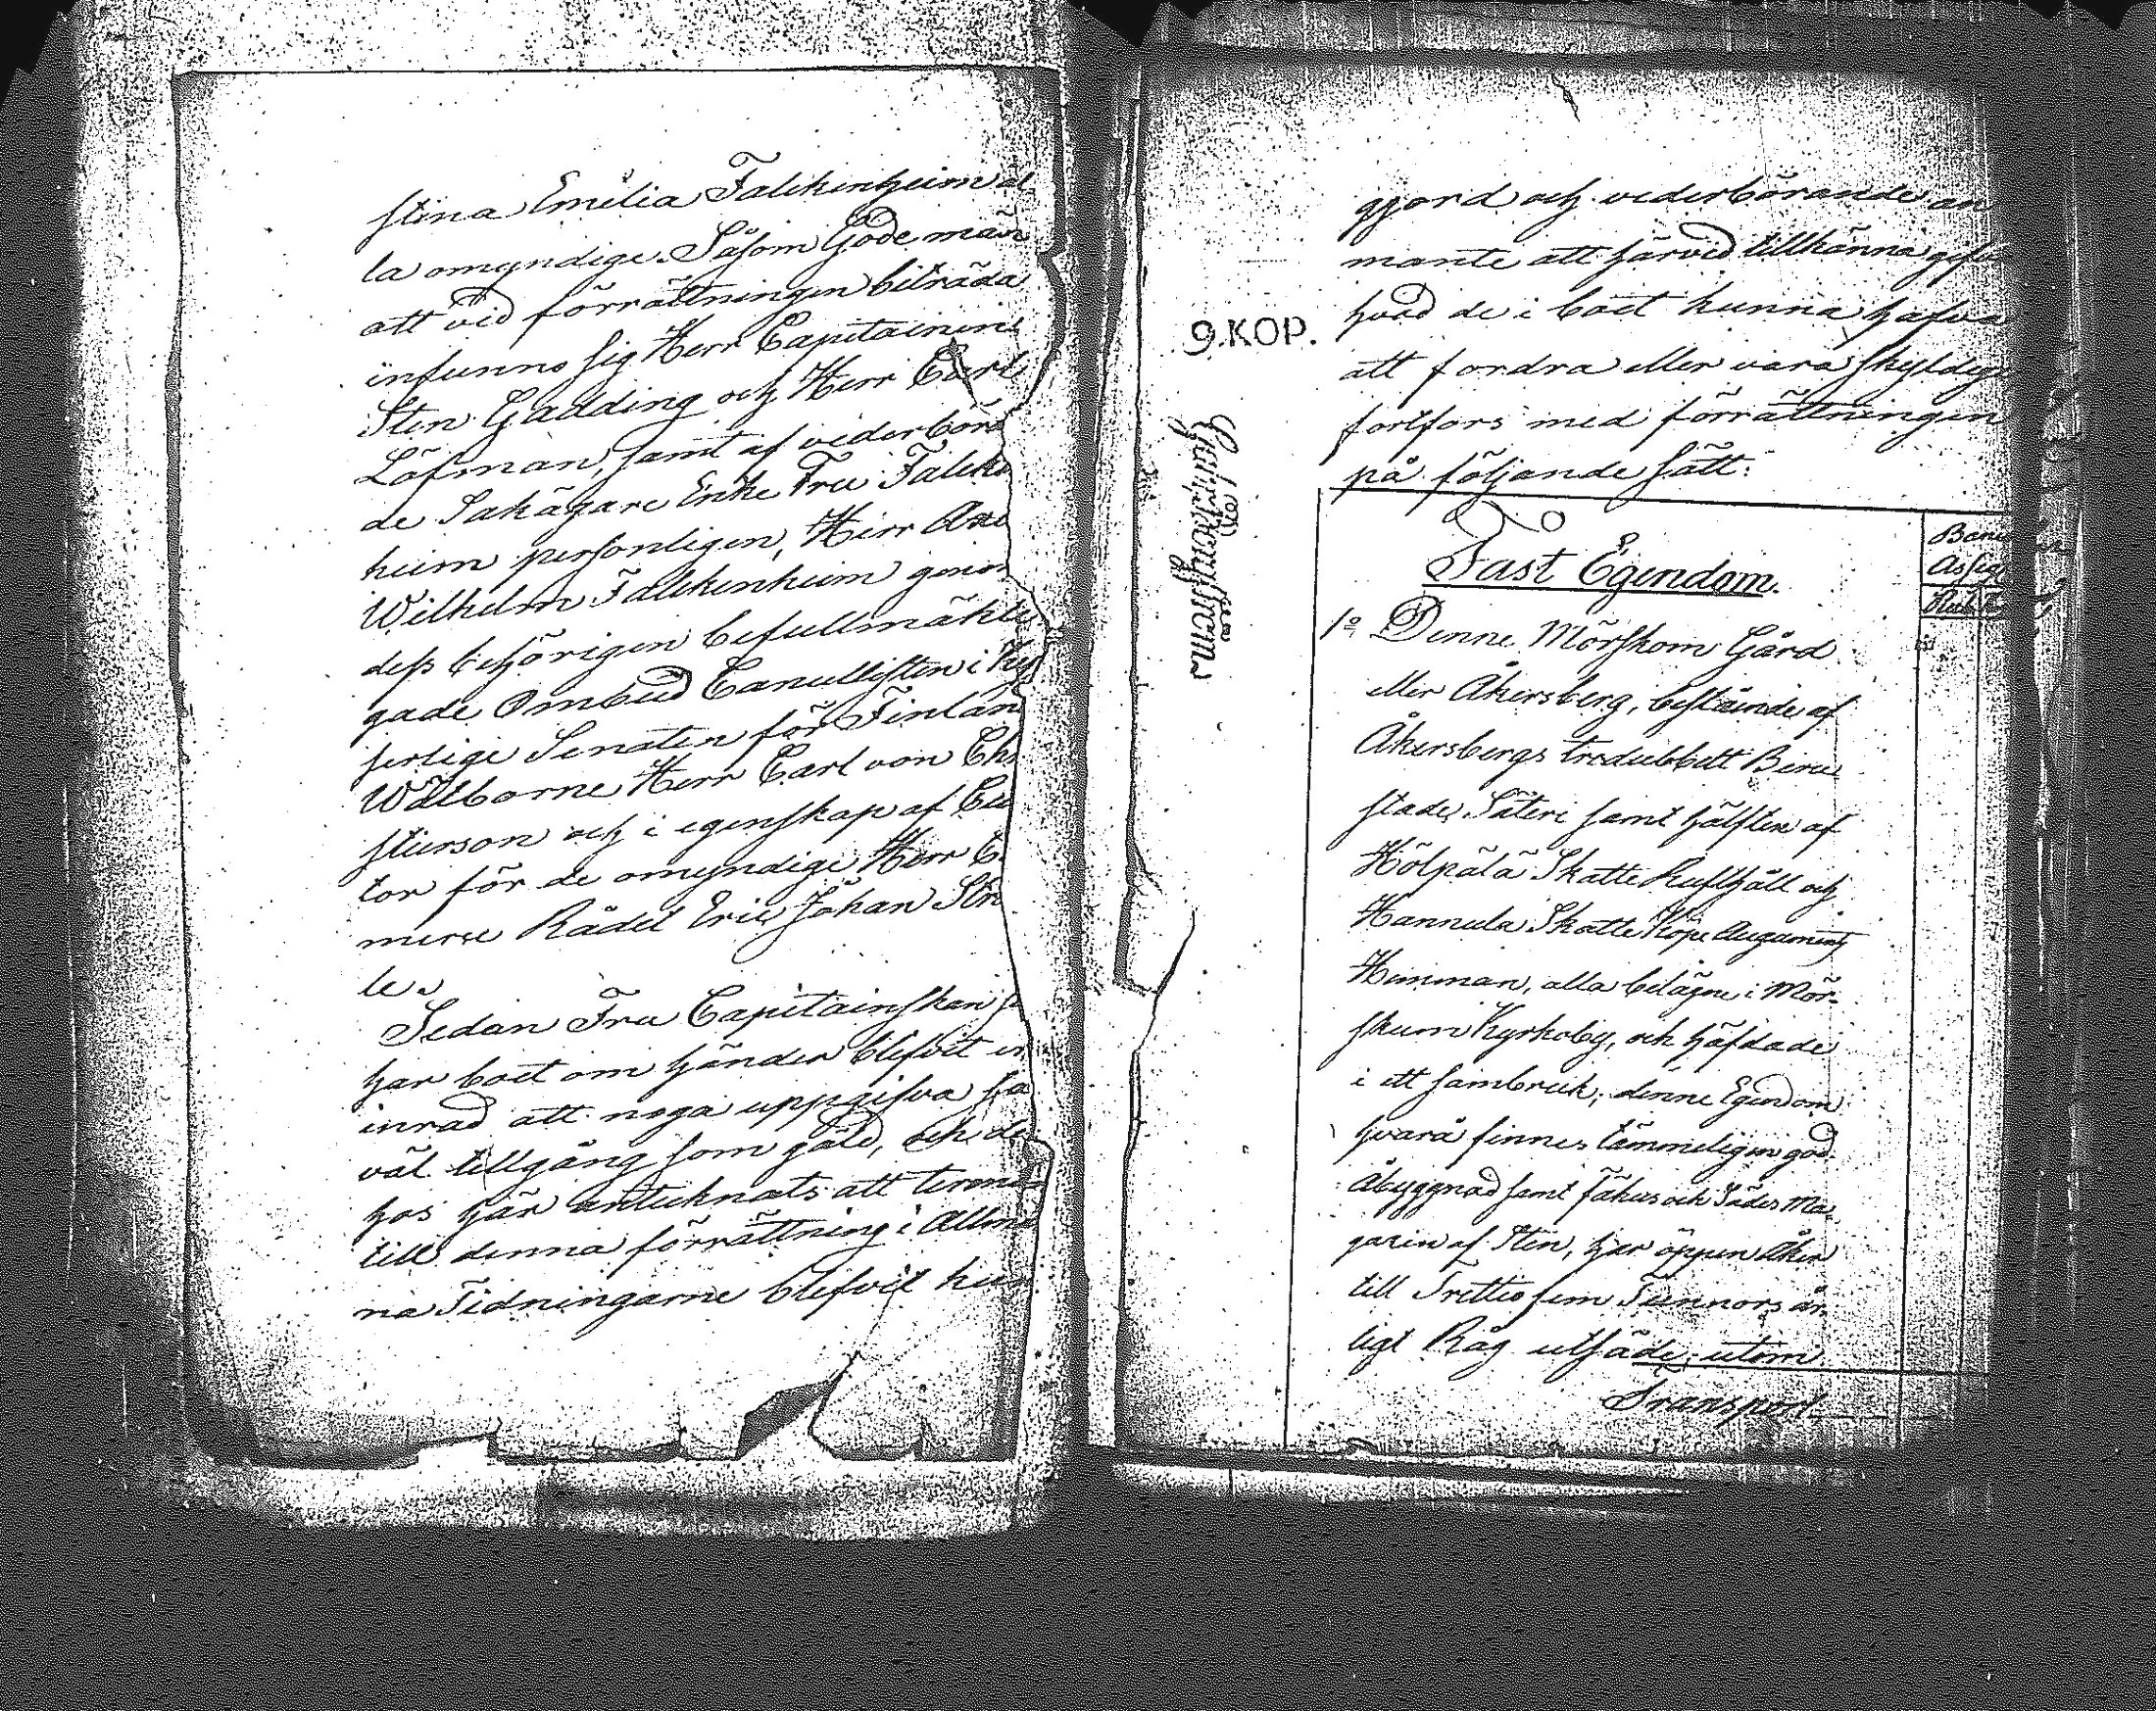 stina Emilia Falckenheim al
la omyndige. Såsom Gode män
att vid förrättningen biträda
infunno sig Herr Capitainen
Sten Gadding och Herr Carl
Löfman, samt af vederböra
de Sakägare Enke Fru Falcke
heim personligen, Herr And
Wilhelm Falckenheim genom
dess behörigen befullmäkti
gade Ombud Cancellisten i Kej
serlige Senaten för Finlan
Wälborne Herr Carl von Chr
stierson och i egenskap af Cu
tor för de omyndige Herr C
merce Rådet Eric Johan Strå
le.
Sedan Fru Capitainskan
har boet om händer blifvit er
inrad att noga uppgifva så
väl tillgång som gäld, och de
hos här antecknats att termi
till denna förrättning i Allmä
na Tidningarne blifvit kun
gjord och vederbörande an
mante att härvid tillkänna gifva
hvad de i boet kunna hafva
att fordra eller vara skyldige
fortfors med förrättningen
på följande sätt:
9.KOP.
Fast Egendom.
Banco
Assig
Rub. K
1o Denne Mörskom Gård
eller Åkersberg, bestående af
Åkersbergs tredubbelt Beru
stade Säteri samt hälften af
Hölpälä Skatte Rusthåll och
Hannula Skatte Köpe Augments
Hemman, alla belägne i Mör-
skom Kyrkoby, och häfdade
i ett sambruk; denne Egendom
hvarå finnes tämmeligen god
Åbyggnad samt Fähus och Sädes Ma-
gazin af Sten, har öppen Åker
till Trettio fem Tunnors år-
ligt Råg utsäde, utom
Transport